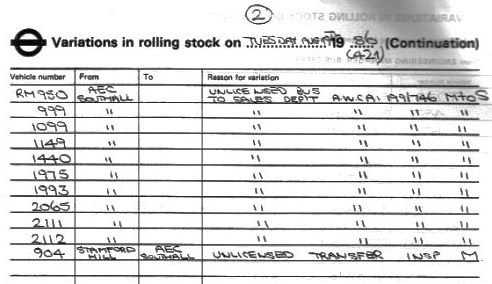 2
Variations in rolling stock on TUESDAY AUGUST 19 86 (Continuation)
(424)
Vehicle number From To Reason for variation
RM 950 AEC SOUTHALL UNLICENSED BUS TO SALES DEP'T A.W.C.A1 M to S
999 " " " " "
1099 " " " " "
1149 " " " " "
1440 " " " " "
1975 " " " " "
1993 " " " " "
2065 " " " " "
2111 " " " " "
2112 " " " " "
904 STAMFORD HILL AEC SOUTHALL UNLICENSED TRANSFER INSP M